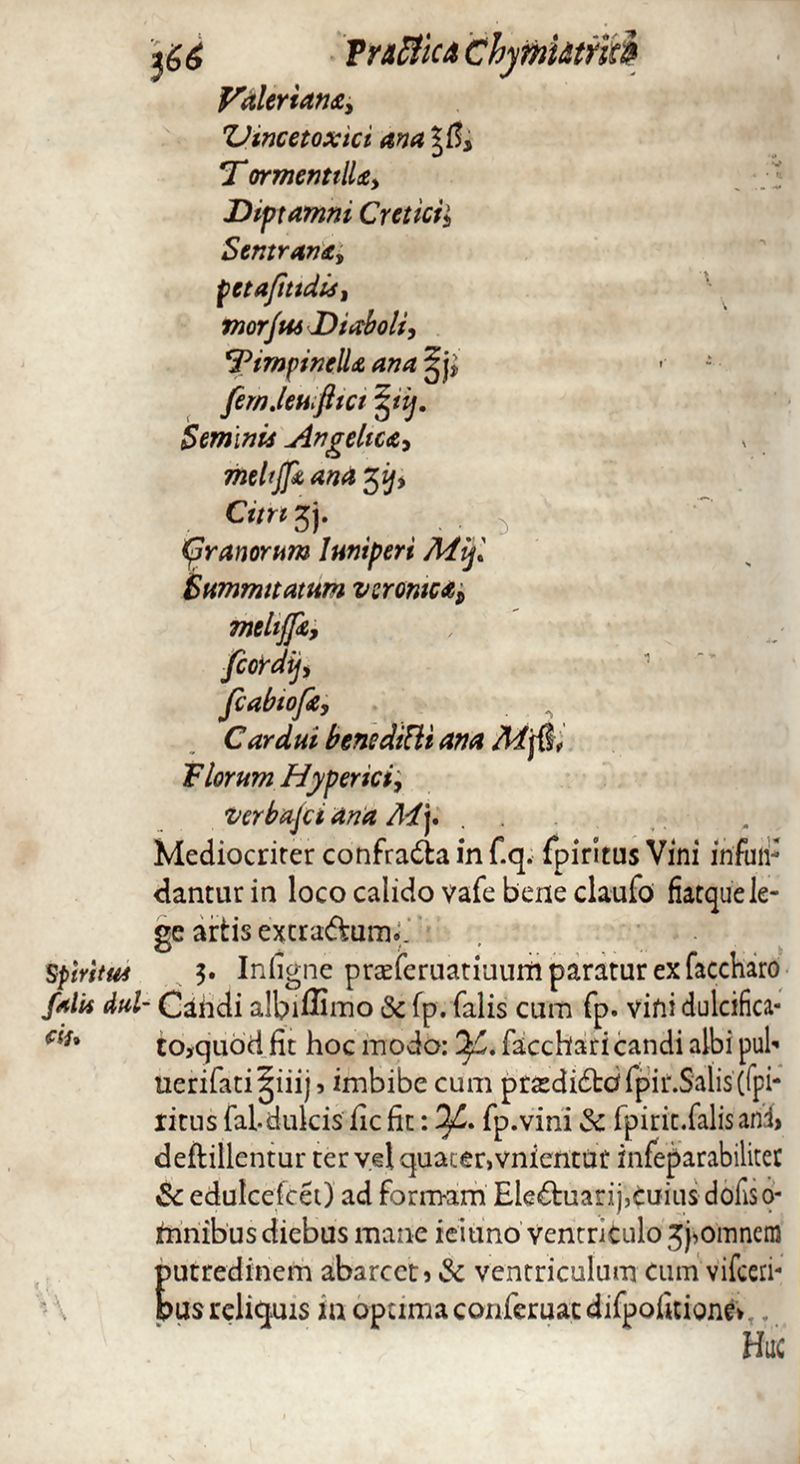 366 Practica Chymiatrica
Valerianæ,
Vincetoxici ana ℥ß,
Tormentillæ,
Diptamni Cretici,
Sentranæ,
petasitidis,
morsus Diaboli,
Pimpinellæ ana ℥j,
sem.leuistici ℥iij.
Seminis Angelicæ,
melissæ ana ʒij,
Citri ʒj.
Granorum Iuniperi Mij.
Summitatum veronicæ,
melissæ,
scordij,
scabiosæ,
Cardui benedicti ana Mjß,
Florum Hyperici,
verbasci ana Mj.
Mediocriter confracta in s.q. spiritus Vini infun-
dantur in loco calido vase bene clauso fiatque le-
ge artis extractum.
3. Insigne præseruatiuum paratur ex saccharo
Spiritus
salis dul-
cis.
Candi albissimo & sp. salis cum sp. vini dulcifica-
to, quod fit hoc modo: ♃. sacchari candi albi pul-
uerisati ℥iiij, imbibe cum prædicto spir.Salis (spi-
ritus sal.dulcis sic fit: ♃. sp.vini & spirit.salis anā,
destillentur ter vel quater, vnientur inseparabiliter
& edulcescēt) ad formam Electuarij, cuius dosis o-
mnibus diebus mane ieiuno ventriculo ʒj, omnem
putredinem abarcet, & ventriculum cum visceri-
bus reliquis in optima conseruat dispositione.
Huc